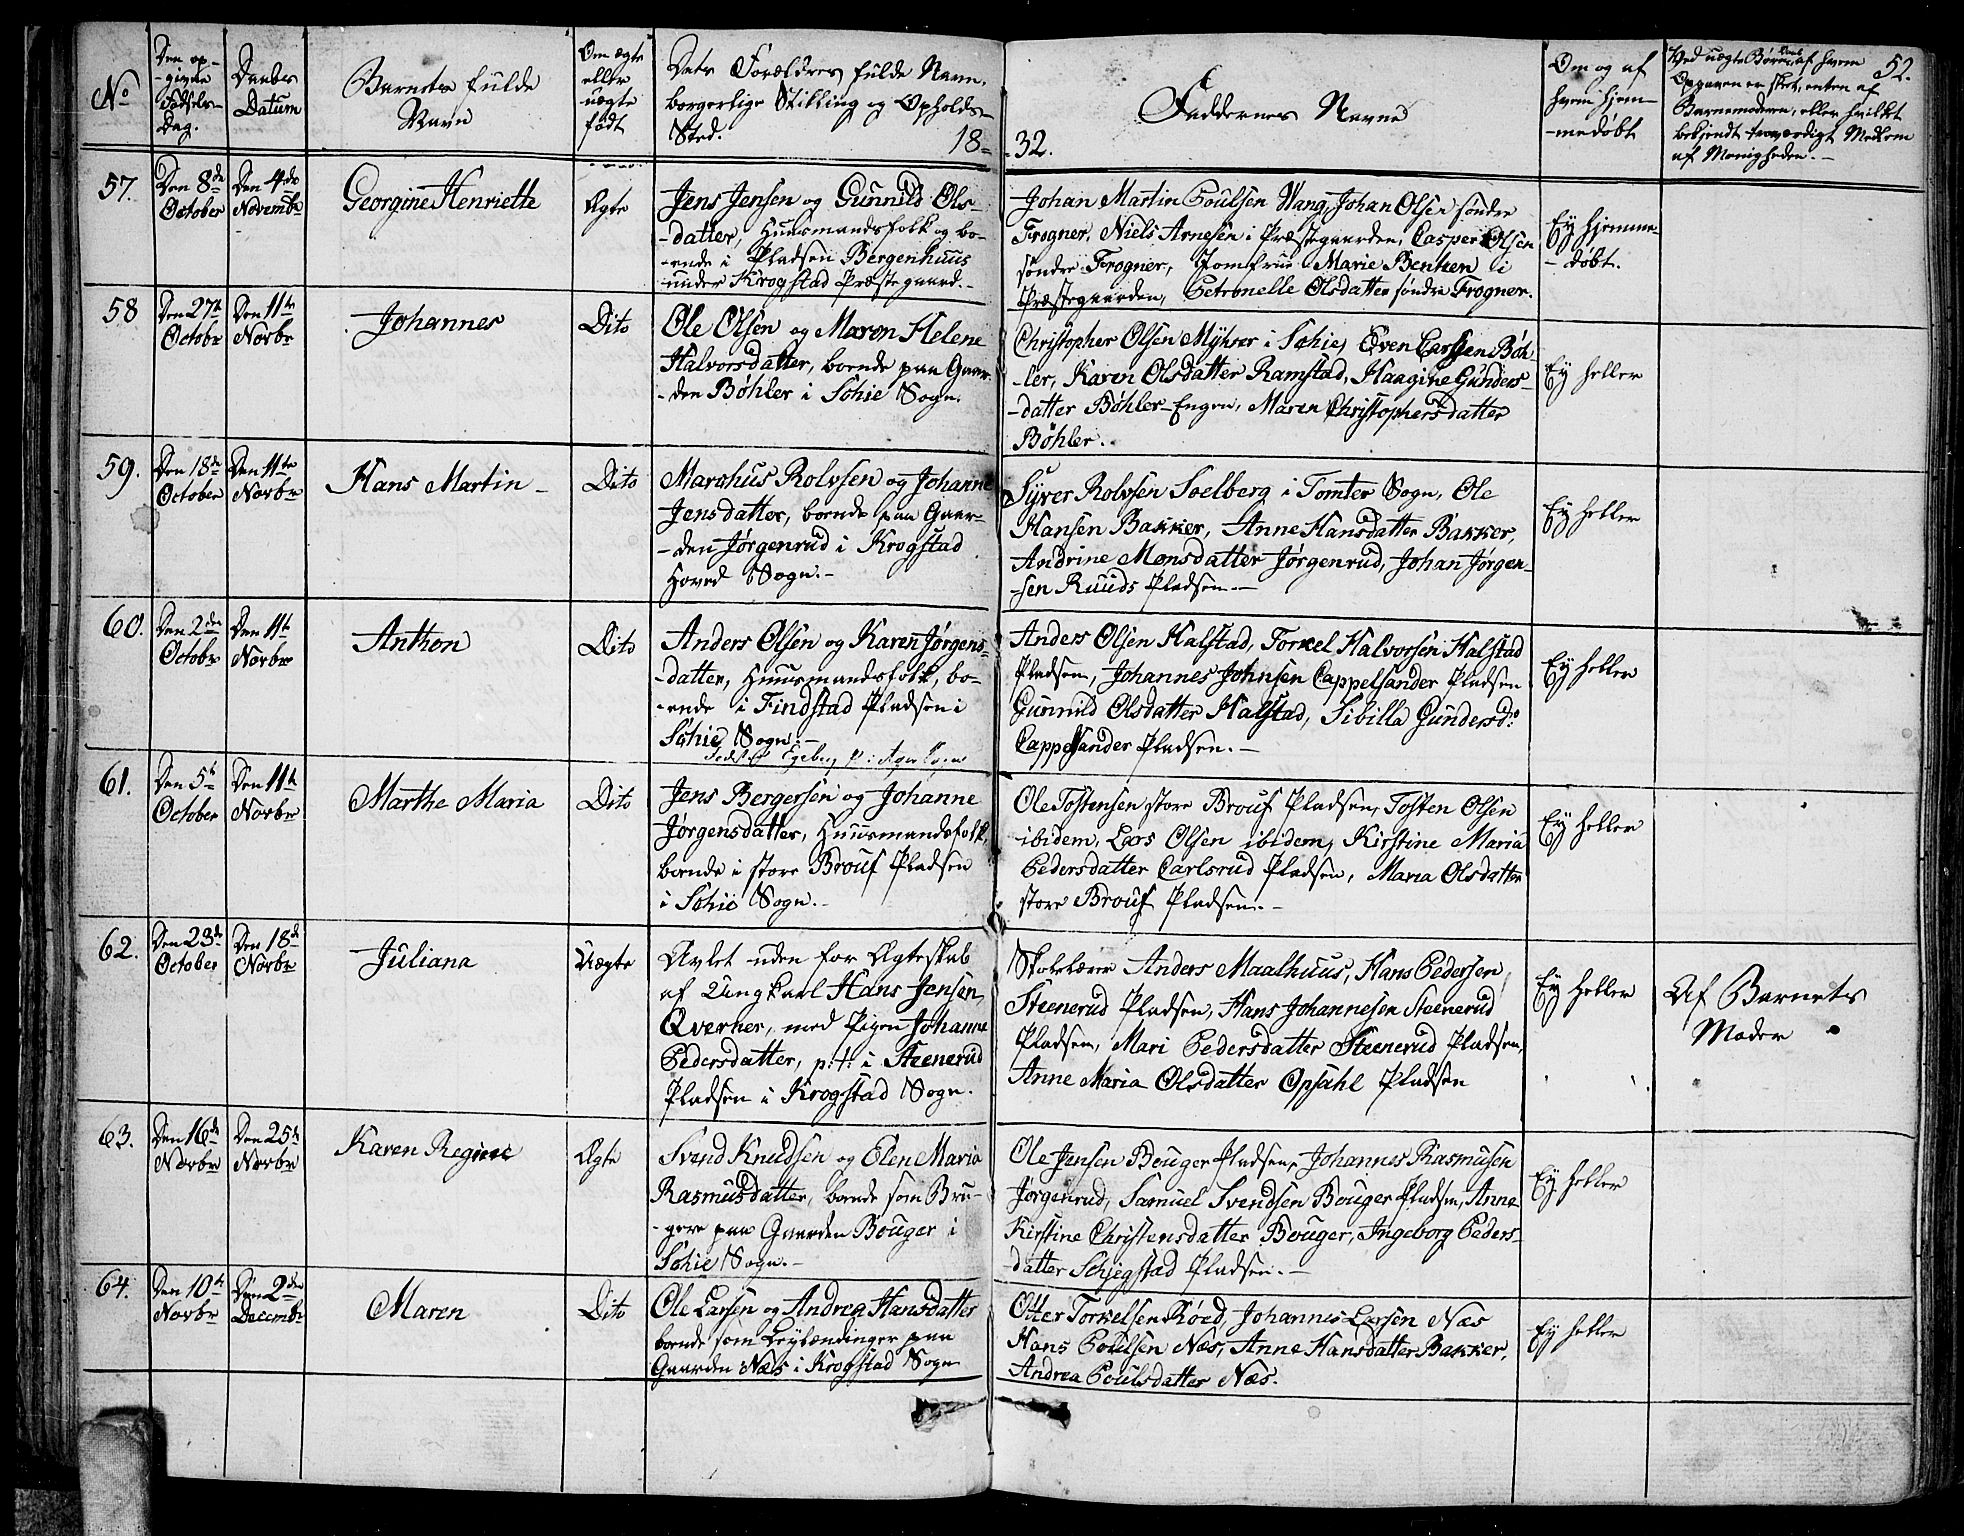 No
Den op-
-givne
Fødsels-
Dag.
Daabs
Datum
Barnets fulde
Navn
Om ægte
eller
uægte
født
Dets Forældres fulde Navn,
borgerlige Stilling og Opholds-
Sted. 18-
-32.
Faddernes Navne
Om og af
hvem hjem-
-medøbt
Ved uægte Børns Daab, af hvem
Opgaven er skeet, enten af
Barnemoderen, eller hvilket
bekjendt troværdigt Medlem
af Menigheden.-
52.
57.
Den 8de
October
Den 4de
Novembr
Georgine Henriette
Ægte
Jens Jensen og Gunnild Ols-
-datter, Huusmandsfolk og bo-
-ende i Pladsen Bergenhuus
under Krogstad Præstegaard.-
Johan Martin Poulsen Wang, Johan Olsen søndre
Frogner, Niels Arnesen i Præstegaarden, Casper Olsen
søndre Frogner, Jomfrue Marie Benken i
Præstegaarden, Petronelle Olsdatter søndre Frogner.
Ey hjemme-
-døbt.
58
Den 27de
Octobr
Den 11te
Novbr
Johannes
Dito
Ole Olsen og Maren Helene
Halvorsdatter, boende paa Gaar-
-den Bøhler i Schie Sogn.
Christopher Olsen Myhrer i Schie, Even Carlsen Bøh-
-ler, Karen Olsdatter Ramstad, Haagine Gunders-
-datter Bøhler-Engen, Maren Christophersdatter
Bøhler.
Ey heller
59.
Den 18de
October
Den 11te
Novbr
Hans Martin
Dito
Marchus Rolvsen og Johanne
Jensdatter, boende paa Gaar-
-den Jørgenrud i Krogstad
Hoved Sogn.-
Syver Rolvsen Soelberg i Tomter Sogn, Ole
Hansen Bakker, Anne Hansdatter Bakker,
Andrine Monsdatter Jørgenrud, Johan Jørgen-
-sen Ruuds Pladsen.-
Ey heller
60.
Den 2den
Octobr
Den 11te
Novbr
Anthon
Dito
Anders Olsen og Karen Jørgens-
-datter, Huusmandsfolk, bo-
-ende i Findstad Pladsen i
Schie Sogn.-
Anders Olsen Halstad, Torkel Halvorsen Halstad
Pladsen, Johannes Johnsen Cappelsander Pladsen
Gunnild Olsdatter Halstad, Sibilla Gundersd:
Cappelsander Pladsen.-
Ey heller
61.
Den 5te
October
Den 11te
Novbr
Marthe Maria
Dito
Jens Bergersen og Johanne
Jørgensdatter, Huusmandsfolk,
boende i store Brouf Pladsen
i Schie Sogn.-
Ole Tostensen store Brouf Pladsen, Tosten Olsen
ibidem, Lars Olsen ibidem, Kirstine Maria
Pedersdatter Carlsrud Pladsen, Maria Olsdatter
store Brouf Pladsen.-
Ey heller
62.
Den 23de
October
Den 18de
Novbr
Juliana
Uægte
Avlet uden for Ægteskab
af Ungkarl Hans Jensen
Qverner, med Pigen Johanne
Pedersdatter, p:t: i Steenerud
Pladsen i Krogstad Sogn.
Skolelærer Anders Maalhuus, Hans Pedersen
Steenerud Pladsen, Hans Johannesen Steenerud
Pladsen, Mari Pedersdatter Steenerud Pladsen,
Anne Maria Olsdatter Opsahl Pladsen
Ey heller
Af Barnets
Moder
63.
Den 16de
Novbr
Den 25de
Novbr
Karen Regine
Ægte
Svend Knudsen og Elen Maria
Rasmusdatter, boende som Bru-
-gere paa Gaarden Bouger i
Schie Sogn.-
Ole Jensen Bouger Pladsen, Johannes Rasmusen
Jørgenrud, Samuel Svendsen Bouger Pladsen, Anne
Kirstine Christensdatter Bouger, Ingeborg Peders-
datter Schjegstad Pladsen.-
Ey heller
64.
Den 10de
Novbr
Den 2den
Decembr
Maren
Dito
Ole Larsen og Andrea Hansdatter
boende som Leylændinger paa
Gaarden Næs i Krogstad Sogn
Otter Torkelsen Røed, Johannes Larsen Næs
Hans Poulsen Næs, Anne Hansdatter Bakker,
Andrea Poulsdatter Næs.
Ey heller